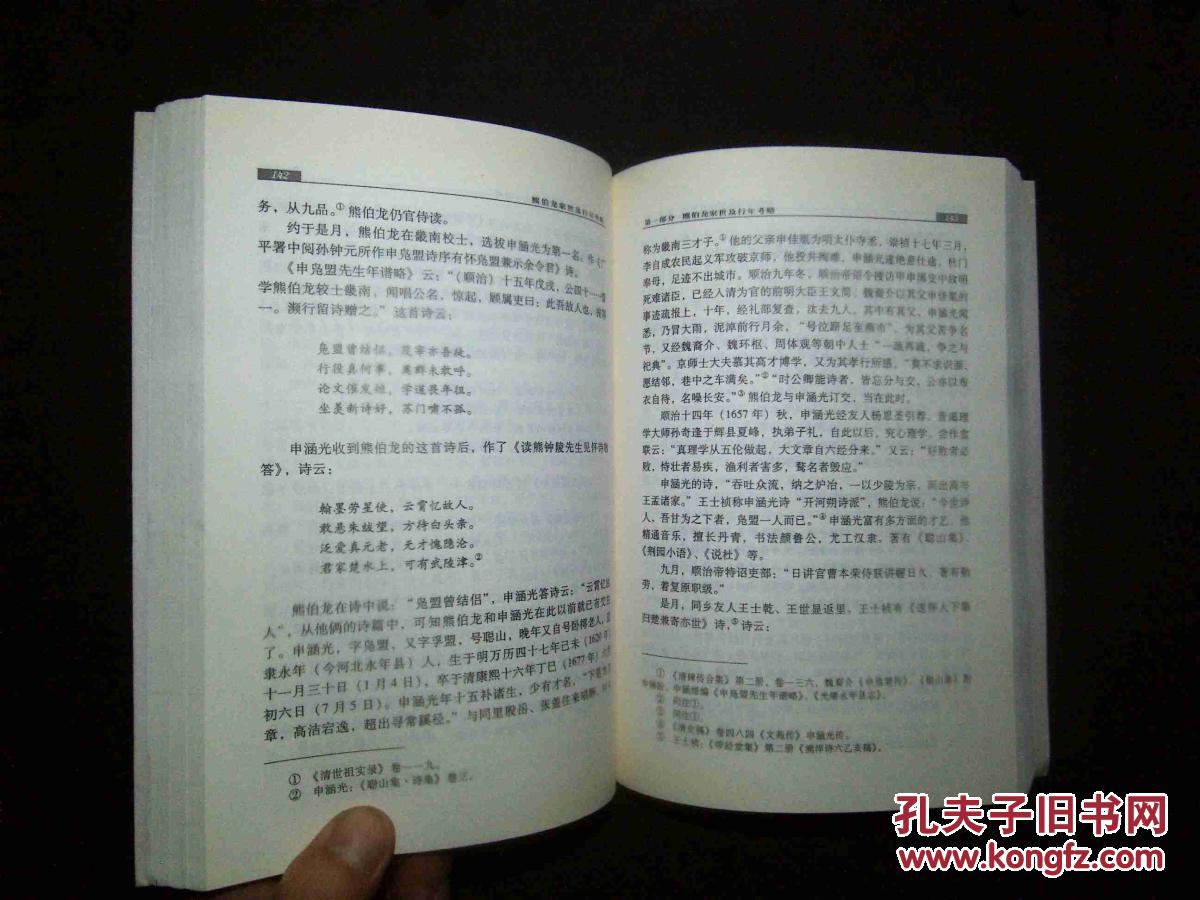 142
熊伯龙家世及行年考略
务，从九品。①熊伯龙仍官侍读。
约于是月，熊伯龙在畿南校士，选拔申涵光为第一名，作《广
平署中阅孙钟元所作申凫盟诗序有怀凫盟兼示余令君》诗。
《申凫盟先生年谱略》云：“（顺治）十五年戊戌，公四十……督
学熊伯龙较士畿南，闻唱公名，惊起，顾属吏曰：此吾故人也，拔第
一。濒行留诗赠之。”这首诗云：
凫盟曾结侣，
行役真何事，离群未敢呼。
论文催发短，学道畏年徂。
坐羡新诗好，苏门啸不孤。
申涵光收到熊伯龙的这首诗后，作了《读熊钟陵先生见怀诗
答》，诗云：
翰墨劳星使，云霄忆故人。
敢悬朱绂望，方待白头亲。
泛爱真元老，无才愧隐沦。
君家楚水上，可有武陵津。②
熊伯龙在诗中说：“凫盟曾结侣”，申涵光答诗云：“云霄忆故
人”，从他俩的诗篇中，可知熊伯龙和申涵光在此以前就已有交往
了。申涵光，字凫盟，又字孚盟，号聪山，晚年又自号卧樗老人，直
隶永年（今河北永年县）人，生于明万历四十七年己未（1620年）
十一月三十日（1月4日），卒于清康熙十六年丁巳（1677年）六月
初六日（7月5日）。申涵光年十五补诸生，少有才名，“下笔为文
章，高洁宕逸，超出寻常蹊径。”与同里殷岳、张盖往来唱酬，
① 《清世祖实录》卷一一九。
② 申涵光：《聪山集·诗集》卷三。
第一部分 熊伯龙家世及行年考略
143
称为畿南三才子。①他的父亲申佳胤为明太仆寺丞，崇祯十七年三月，
李自成农民起义军攻破京师，他投井殉难，申涵光遂绝意仕途，杜门
奉母，足迹不出城市。顺治九年冬，顺治帝诏令搜访甲申国变中故明
死难诸臣，已经入清为官的前明大臣王文简、魏裔介以其父申佳胤的
事迹疏报上，十年，经礼部复查，汰去九人，其中有其父，申涵光闻
悉，乃冒大雨，泥淖前行月余，“号泣踯足至燕市”，为其父苦争名
节，又经魏裔介、魏环枢、周体观等朝中人士“一疏再疏，争之与
祀典”。京师士大夫慕其高才博学，又为其孝行所感，“莫不求识面，
愿结邻，巷中之车满矣。”②“时公卿能诗者，皆忘分与交，公亦以布
衣自待，名噪长安。”③熊伯龙与申涵光订交，当在此时。
顺治十四年（1657年）秋，申涵光经友人杨思圣引荐，晋谒理
学大师孙奇逢于辉县夏峰，执弟子礼，自此以后，究心理学，尝作堂
联云：“真理学从五伦做起，大文章自六经分来。”又云：“好胜者必
败，恃壮者易疾，渔利者害多，骛名者毁应。”
申涵光的诗，“吞吐众流，纳之炉冶，一以少陵为宗，而出高岑
王孟诸家。”王士祯称申涵光诗“开河朔诗派”，熊伯龙说：“今世诗
人，吾甘为之下者，凫盟一人而已。”④申涵光富有多方面的才艺，他
精通音乐，擅长丹青，书法颜鲁公，尤工汉隶，著有《聪山集》、
《荆园小语》、《说杜》等。
九月，顺治帝特诏吏部：“日讲官曹本荣侍朕讲幄日久，著有勤
劳，着复原职级。”
是月，同乡友人王士乾、王世显返里，王士祯有《送怀人下第
归楚兼寄亦世》诗，⑤诗云：
① 《清碑传合集》第二册，卷一三六，魏裔介《申凫盟传》、《聪山集》附
申涵盼、申涵煜编《申凫盟先生年谱略》、《光绪永平县志》。
② 同注①。
③ 同注①。
④ 《清史稿》卷四八四《文苑传》申涵光传。
⑤ 王士祯：《带经堂集》第二册《渔洋诗六乙亥稿》。
孔夫子旧书网
www.kongfz.com